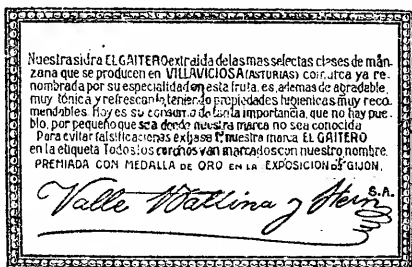 Nuestra sidra EL GAITERO extraida de las mas selectas clases de man-
zana que se producen en VILLAVICIOSA (ASTURIAS) comarca ya re-
nombrada por su especialidad en esta fruta, es, ademas de agradable,
muy tónica y refrescante, teniendo propiedades higienicas muy reco-
mendables. Hoy es su consumo de tanta importancia, que no hay pue-
blo, por pequeño que sea donde nuestra marca no sea conocida
Para evitar falsificaciones exijase nuestra marca EL GAITERO
en la etiqueta Todos los corchos van marcados con nuestro nombre.
PREMIADA CON MEDALLA DE ORO EN LA EXPOSICION DE GIJON.
Valle Ballina y Fern S.A.